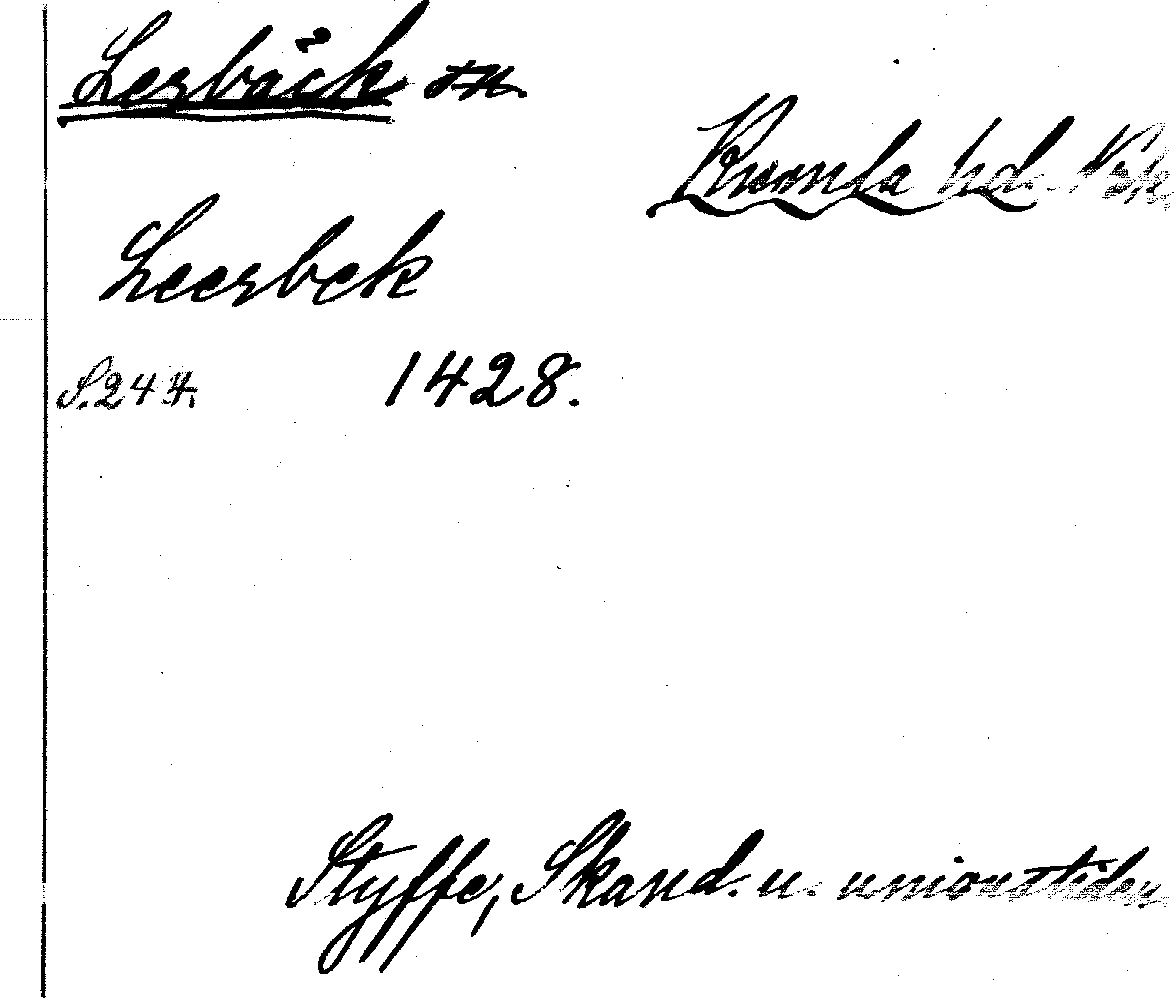 Lerbäck sn.
Kumla hd. Närke
Leerbek
S. 247.
1428.
Styffe, Skand. u. unionstiden